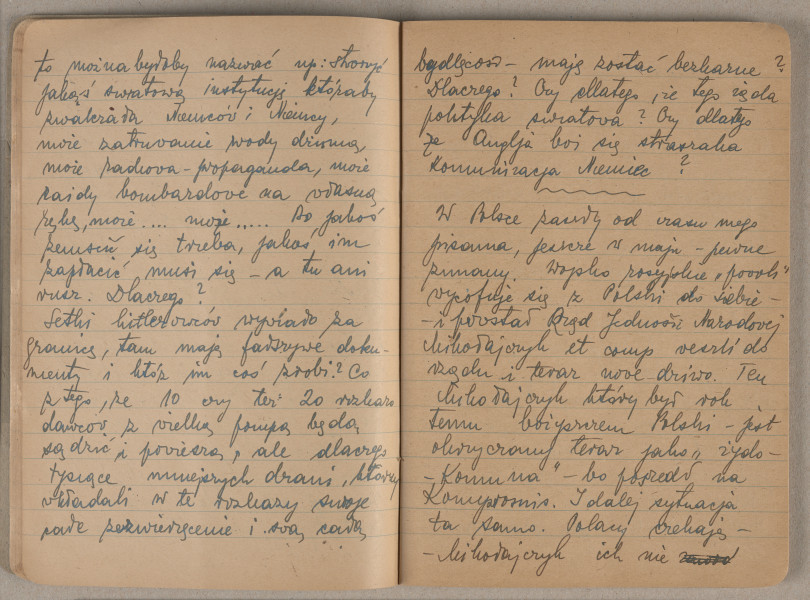 to można byłoby nazwać np: stworzyć
jakąś światową instytucję któraby
zwalczała Niemców i Niemcy,
może zatruwanie wody
może radiowa – propaganda, może
raidy bombardowe na własną
rękę, może .... może ..... Bo jakoś
zemścić się trzeba, jakoś im
zapłacić musi się – a tu ani
rusz. Dlaczego?
Setki hitlerowców wyjeżdża za
granicę, tam mają fałszywe doku-
menty i któż im coś zrobi? Co
z tego, że 10 czy też 20 rozkazo-
dawców z wielką pompą będą
sądzić i powieszą, ale dlaczego
tysiące mniejszych drani, którzy
wkładali w te rozkazy swoje
całe zezwierzęcenie i swą całą
bydlęcość – mają zostać bezkarne?
Dlaczego? Czy dlatego, że tego żąda
polityka światowa? Czy dlatego
że Anglja boi się straszaka
Komunizacja Niemiec?
W Polsce zaszły od czasu mego
pisania, jeszcze w maju – pewne
zmiany. Wojsko rosyjskie „powoli"
wycofuje się z Polski do siebie –
– i powstał Rząd Jedności Narodowej
Mikołajczyk et comp weszli do
rządu i teraz nowe dziwo. Ten
Mikołajczyk który był rok
temu bożyszczem Polski – jest
okrzyczany teraz jako „żydo-
– Komuna" – bo poszedł na
Kompromis. I dalej sytuacja
ta sama. Polacy czekają –
– Mikołajczyk ich nie